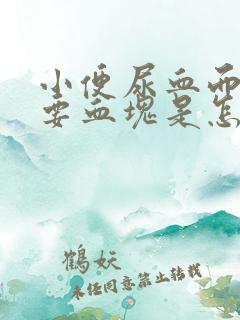 小便尿血而
要血块是怎
鹤妖
未经同意禁止转载